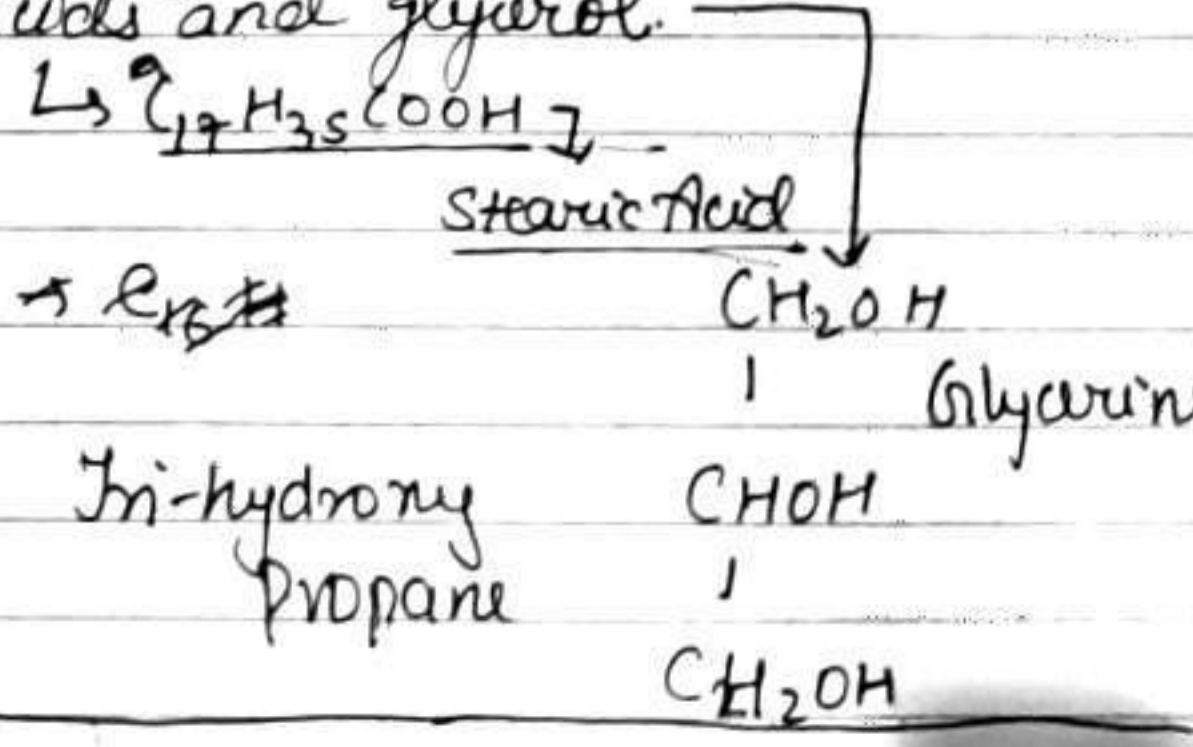 acids and glycerol.
↳ C₁₇H₃₅COOH
Stearic Acid
CH₂OH
Glycerin
Tri-hydroxy
CHOH
Propane
CH₂OH